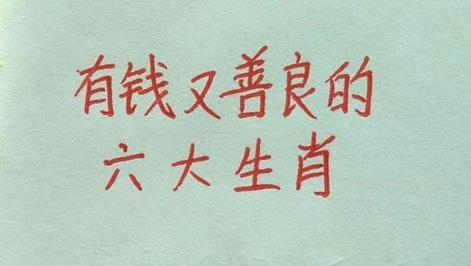 有钱又善良的
六大生肖